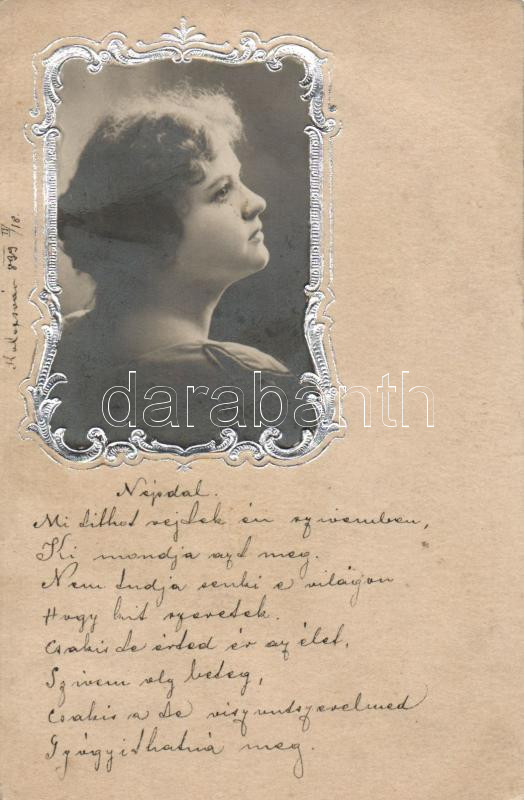 Kolozsvár 899 IV/18
darabanth
Népdal.
Mi titkot rejtek én szivemben,
Ki mondja azt meg.
Nem tudja senki e világon
Hogy kit szeretek.
Csakis te érted ér az élet,
Szivem oly beteg,
Csakis a te viszontszerelmed
Gyógyithatná meg.